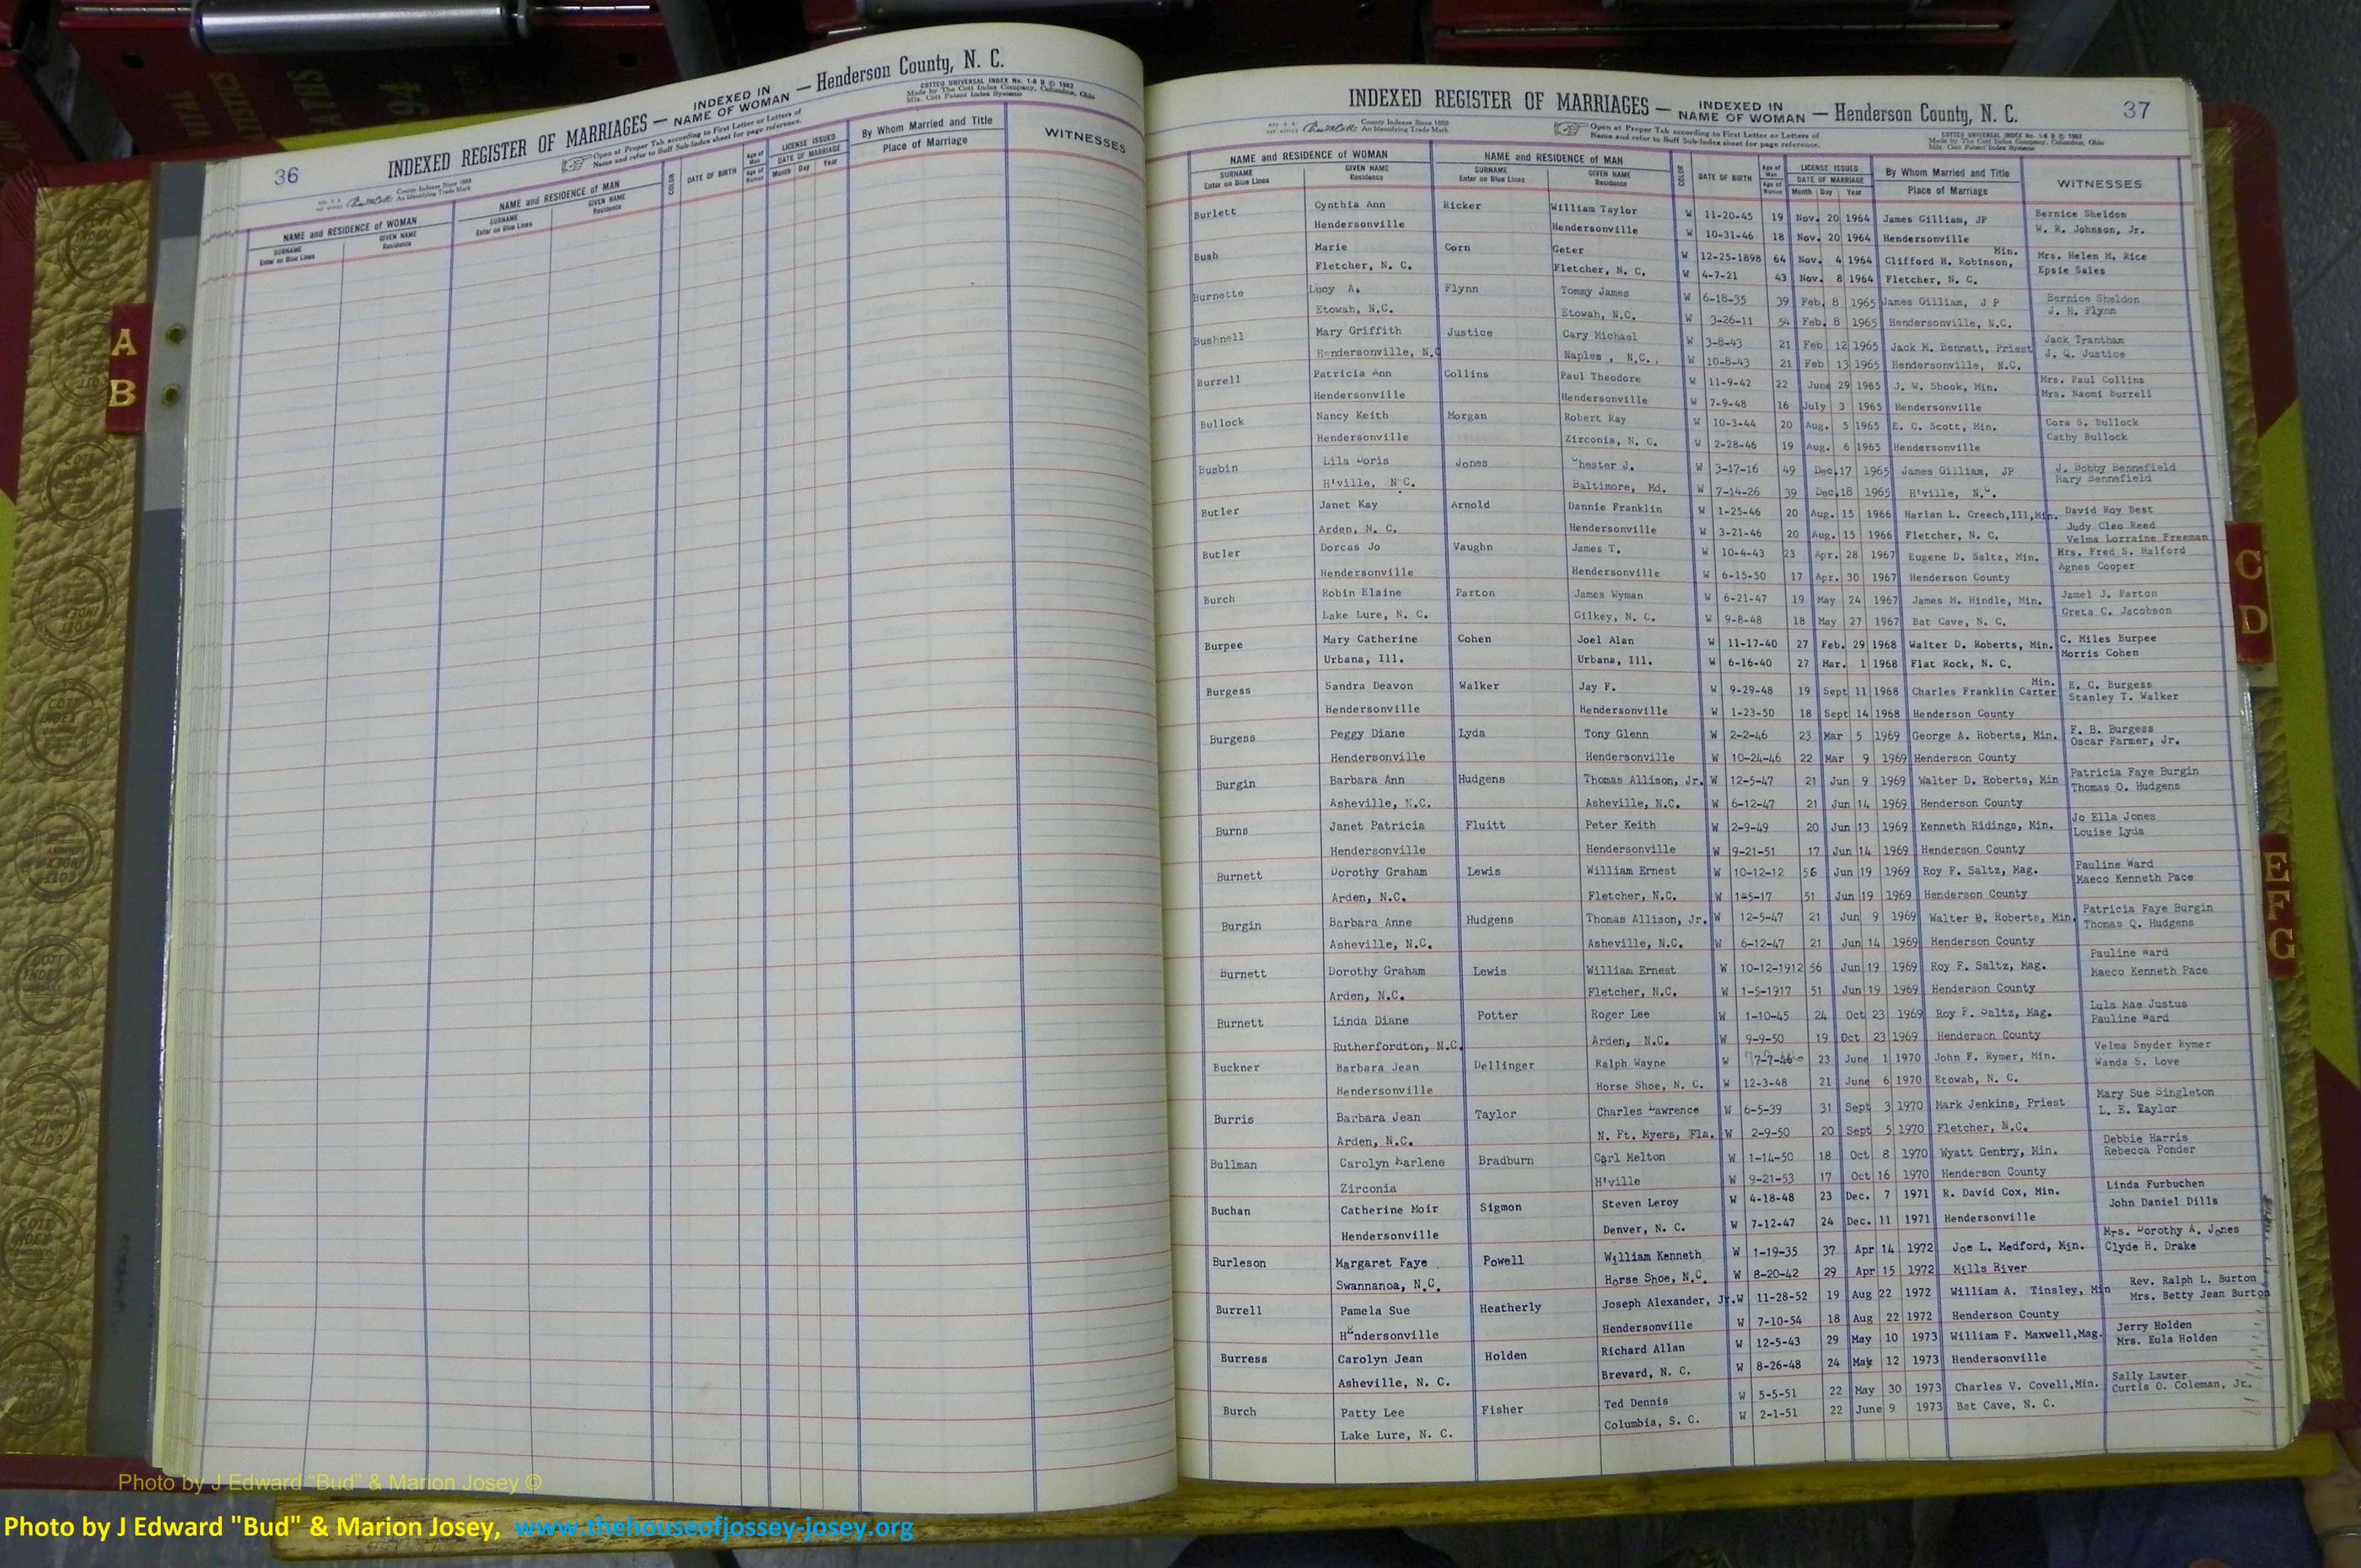 36
INDEXED REGISTER OF MARRIAGES — INDEXED IN NAME OF WOMAN — Henderson County, N. C.
COTTCO UNIVERSAL INDEX No. 1-6 D © 1962
Made by The Cott Index Company, Columbus, Ohio
Mfs. Cott Patent Index Systems
County Indexes Since 1888
An Identifying Trade Mark
Open at Proper Tab according to First Letter or Letters of
Name and refer to Buff Sub-Index sheet for page reference.
NAME and RESIDENCE of WOMAN NAME and RESIDENCE of MAN COLOR DATE OF BIRTH Age of Man Age of Woman LICENSE ISSUED DATE OF MARRIAGE By Whom Married and Title WITNESSES
SURNAME Enter on Blue Lines GIVEN NAME Residence SURNAME Enter on Blue Lines GIVEN NAME Residence Month Day Year Place of Marriage
A
B
INDEXED REGISTER OF MARRIAGES — INDEXED IN NAME OF WOMAN — Henderson County, N. C. 37
County Indexes Since 1888
An Identifying Trade Mark
Open at Proper Tab according to First Letter or Letters of
Name and refer to Buff Sub-Index sheet for page reference.
COTTCO UNIVERSAL INDEX No. 1-6 D © 1962
Made by The Cott Index Company, Columbus, Ohio
Mfs. Cott Patent Index Systems
NAME and RESIDENCE of WOMAN NAME and RESIDENCE of MAN COLOR DATE OF BIRTH Age of Man Age of Woman LICENSE ISSUED DATE OF MARRIAGE By Whom Married and Title WITNESSES
SURNAME Enter on Blue Lines GIVEN NAME Residence SURNAME Enter on Blue Lines GIVEN NAME Residence Month Day Year Place of Marriage
Burlett Cynthia Ann Ricker William Taylor W 11-20-45 19 Nov. 20 1964 James Gilliam, JP Bernice Sheldon
Hendersonville Hendersonville W 10-31-46 18 Nov. 20 1964 Hendersonville W. R. Johnson, Jr.
Bush Marie Corn Geter W 12-25-1898 64 Nov. 4 1964 Clifford H. Robinson, Min. Mrs. Helen M. Rice
Fletcher, N. C. Fletcher, N. C. W 4-7-21 43 Nov. 8 1964 Fletcher, N. C. Epsie Sales
Burnette Lucy A. Flynn Tommy James W 6-18-35 39 Feb. 8 1965 James Gilliam, J P Bernice Sheldon
Etowah, N.C. Etowah, N.C. W 3-26-11 54 Feb. 8 1965 Hendersonville, N.C. J. H. Flynn
Bushnell Mary Griffith Justice Cary Michael W 3-8-43 21 Feb 12 1965 Jack M. Bennett, Priest Jack Trantham
Hendersonville, N.C Naples , N.C. W 10-8-43 21 Feb 13 1965 Hendersonville, N.C. J. Q. Justice
Burrell Patricia Ann Collins Paul Theodore W 11-9-42 22 June 29 1965 J. W. Shook, Min. Mrs. Paul Collins
Hendersonville Hendersonville W 7-9-48 16 July 3 1965 Hendersonville Mrs. Naomi Burrell
Bullock Nancy Keith Morgan Robert Ray W 10-3-44 20 Aug. 5 1965 E. C. Scott, Min. Cora S. Bullock
Hendersonville Zirconia, N. C. W 2-28-46 19 Aug. 6 1965 Hendersonville Cathy Bullock
Busbin Lila Doris Jones Chester J. W 3-17-16 49 Dec. 17 1965 James Gilliam, JP J. Bobby Bennefield
H'ville, N.C. Baltimore, Md. W 7-14-26 39 Dec. 18 1965 H'ville, N.C. Mary Bennefield
Butler Janet Kay Arnold Dannie Franklin W 1-25-46 20 Aug. 15 1966 Harlan L. Creech,III,Min. David Roy Best
Arden, N. C. Hendersonville W 3-21-46 20 Aug. 15 1966 Fletcher, N. C. Judy Cleo Reed
Velma Lorraine Freeman
Butler Dorcas Jo Vaughn James T. W 10-4-43 23 Apr. 28 1967 Eugene D. Saltz, Min. Mrs. Fred S. Halford
Hendersonville Hendersonville W 6-15-50 17 Apr. 30 1967 Henderson County Agnes Cooper
Burch Robin Elaine Parton James Wyman W 6-21-47 19 May 24 1967 James M. Hindle, Min. Jamel J. Parton
Lake Lure, N. C. Gilkey, N. C. W 9-8-48 18 May 27 1967 Bat Cave, N. C. Greta C. Jacobson
Burpee Mary Catherine Cohen Joel Alan W 11-17-40 27 Feb. 29 1968 Walter D. Roberts, Min. C. Miles Burpee
Urbana, Ill. Urbana, Ill. W 6-16-40 27 Mar. 1 1968 Flat Rock, N. C. Morris Cohen
Burgess Sandra Deavon Walker Jay F. W 9-29-48 19 Sept 11 1968 Charles Franklin Carter Min. E. C. Burgess
Hendersonville Hendersonville W 1-23-50 18 Sept 14 1968 Henderson County Stanley T. Walker
Burgess Peggy Diane Lyda Tony Glenn W 2-2-46 23 Mar 5 1969 George A. Roberts, Min. F. B. Burgess
Hendersonville Hendersonville W 10-24-46 22 Mar 9 1969 Henderson County Oscar Farmer, Jr.
Burgin Barbara Ann Hudgens Thomas Allison, Jr. W 12-5-47 21 Jun 9 1969 Walter D. Roberts, Min Patricia Faye Burgin
Asheville, N.C. Asheville, N.C. W 6-12-47 21 Jun 14 1969 Henderson County Thomas O. Hudgens
Burns Janet Patricia Fluitt Peter Keith W 2-9-49 20 Jun 13 1969 Kenneth Ridings, Min. Jo Ella Jones
Hendersonville Hendersonville W 9-21-51 17 Jun 14 1969 Henderson County Louise Lyda
Burnett Dorothy Graham Lewis William Ernest W 10-12-12 56 Jun 19 1969 Roy F. Saltz, Mag. Pauline Ward
Arden, N.C. Fletcher, N.C. W 1-5-17 51 Jun 19 1969 Henderson County Maeco Kenneth Pace
Burgin Barbara Anne Hudgens Thomas Allison, Jr. W 12-5-47 21 Jun 9 1969 Walter B. Roberts, Min. Patricia Faye Burgin
Asheville, N.C. Asheville, N.C. W 6-12-47 21 Jun 14 1969 Henderson County Thomas Q. Hudgens
Burnett Dorothy Graham Lewis William Ernest W 10-12-1912 56 Jun 19 1969 Roy F. Saltz, Mag. Pauline Ward
Arden, N.C. Fletcher, N.C. W 1-5-1917 51 Jun 19 1969 Henderson County Maeco Kenneth Pace
Burnett Linda Diane Potter Roger Lee W 1-10-45 24 Oct 23 1969 Roy F. Saltz, Mag. Lula Mae Justus
Rutherfordton, N.C. Arden, N.C. W 9-9-50 19 Oct 23 1969 Henderson County Pauline Ward
Buckner Barbara Jean Dellinger Ralph Wayne W 7-7-46 23 June 1 1970 John F. Rymer, Min. Velma Snyder Rymer
Hendersonville Horse Shoe, N. C. W 12-3-48 21 June 6 1970 Etowah, N. C. Wanda S. Love
Burris Barbara Jean Taylor Charles Lawrence W 6-5-39 31 Sept 3 1970 Mark Jenkins, Priest Mary Sue Singleton
Arden, N.C. N. Ft. Myers, Fla. W 2-9-50 20 Sept 5 1970 Fletcher, N.C. L. E. Taylor
Bullman Carolyn Karlene Bradburn Carl Melton W 1-14-50 18 Oct 8 1970 Wyatt Gentry, Min. Debbie Harris
Zirconia H'ville W 9-21-53 17 Oct 16 1970 Henderson County Rebecca Ponder
Buchan Catherine Moir Sigmon Steven Leroy W 4-18-48 23 Dec. 7 1971 R. David Cox, Min. Linda Furbuchen
Hendersonville Denver, N. C. W 7-12-47 24 Dec. 11 1971 Hendersonville John Daniel Dills
Burleson Margaret Faye Powell William Kenneth W 1-19-35 37 Apr 14 1972 Joe L. Medford, Min. Mrs. Dorothy A. Jones
Swannanoa, N.C. Horse Shoe, N.C. W 8-20-42 29 Apr 15 1972 Mills River Clyde H. Drake
Burrell Pamela Sue Heatherly Joseph Alexander, Jr. W 11-28-52 19 Aug 22 1972 William A. Tinsley, Min Rev. Ralph L. Burton
Hendersonville Hendersonville W 7-10-54 18 Aug 22 1972 Henderson County Mrs. Betty Jean Burton
Burress Carolyn Jean Holden Richard Allan W 12-5-43 29 May 10 1973 William F. Maxwell,Mag. Jerry Holden
Asheville, N. C. Brevard, N. C. W 8-26-48 24 May 12 1973 Hendersonville Mrs. Eula Holden
Burch Patty Lee Fisher Ted Dennis W 5-5-51 22 May 30 1973 Charles V. Covell,Min. Sally Lawter
Lake Lure, N. C. Columbia, S. C. W 2-1-51 22 June 9 1973 Bat Cave, N. C. Curtis O. Coleman, Jr.
C
D
E
F
G
Photo by J Edward "Bud" & Marion Josey ©
Photo by J Edward "Bud" & Marion Josey, www.thehouseofjossey-josey.org